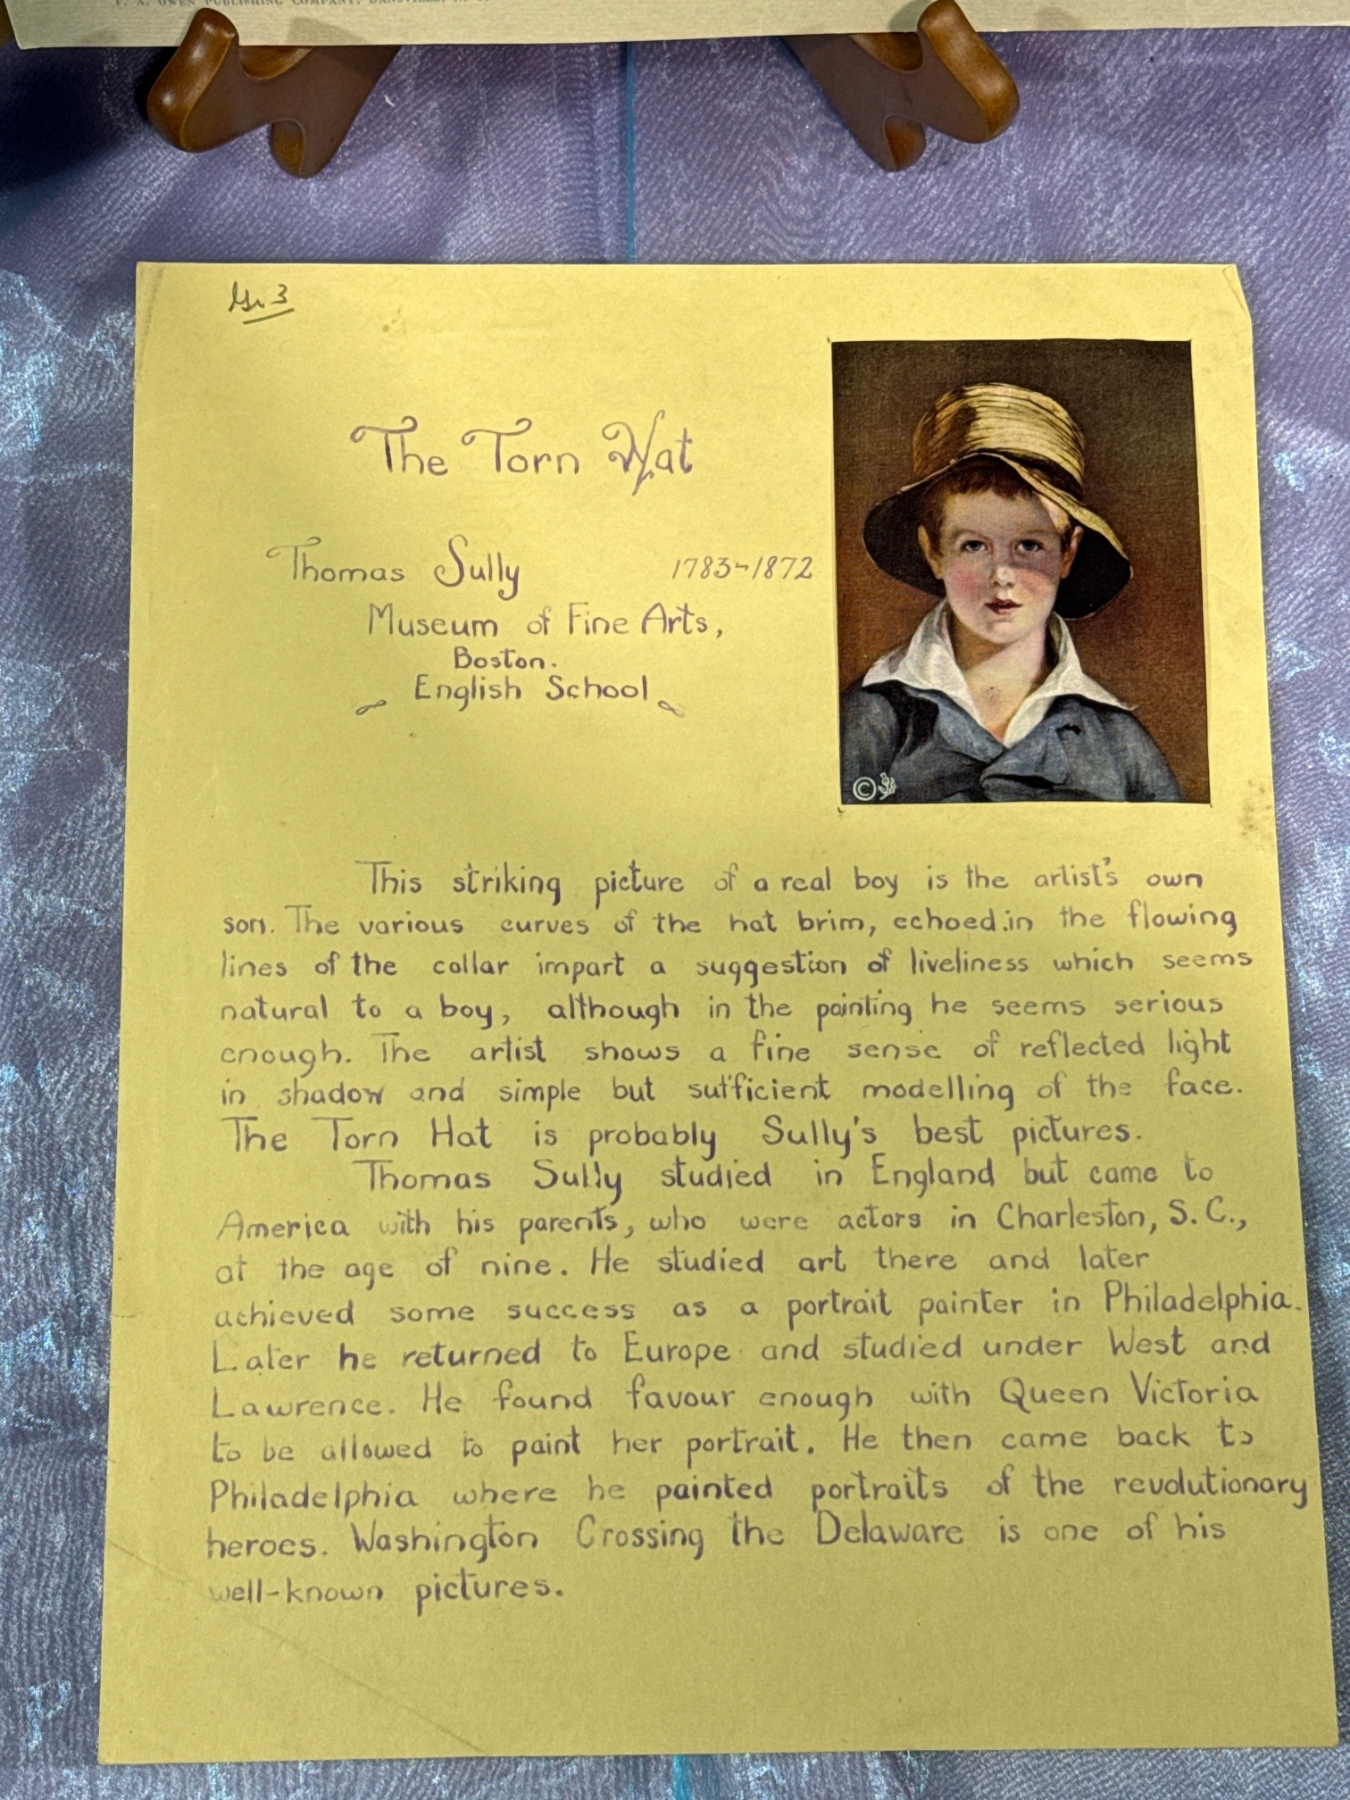 F. A. OWEN PUBLISHING COMPANY, DANSVILLE, N.
Gr. 3
The Torn Hat
Thomas Sully 1783-1872
Museum of Fine Arts,
Boston.
English School
©
This striking picture of a real boy is the artist's own
son. The various curves of the hat brim, echoed in the flowing
lines of the collar impart a suggestion of liveliness which seems
natural to a boy, although in the painting he seems serious
enough. The artist shows a fine sense of reflected light
in shadow and simple but sufficient modelling of the face.
The Torn Hat is probably Sully's best pictures.
Thomas Sully studied in England but came to
America with his parents, who were actors in Charleston, S.C.,
at the age of nine. He studied art there and later
achieved some success as a portrait painter in Philadelphia.
Later he returned to Europe and studied under West and
Lawrence. He found favour enough with Queen Victoria
to be allowed to paint her portrait. He then came back to
Philadelphia where he painted portraits of the revolutionary
heroes. Washington Crossing the Delaware is one of his
well-known pictures.